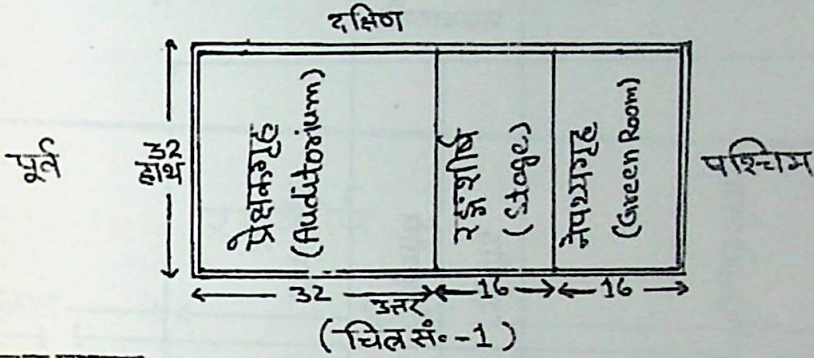 दक्षिण
पूर्व
32
हाथ
प्रेक्षकगृह
(Auditorium)
रङ्गशीर्ष
(Stage)
नेपथ्यगृह
(Green Room)
पश्चिम
32
16
16
उत्तर
(चित्र सं॰-1)